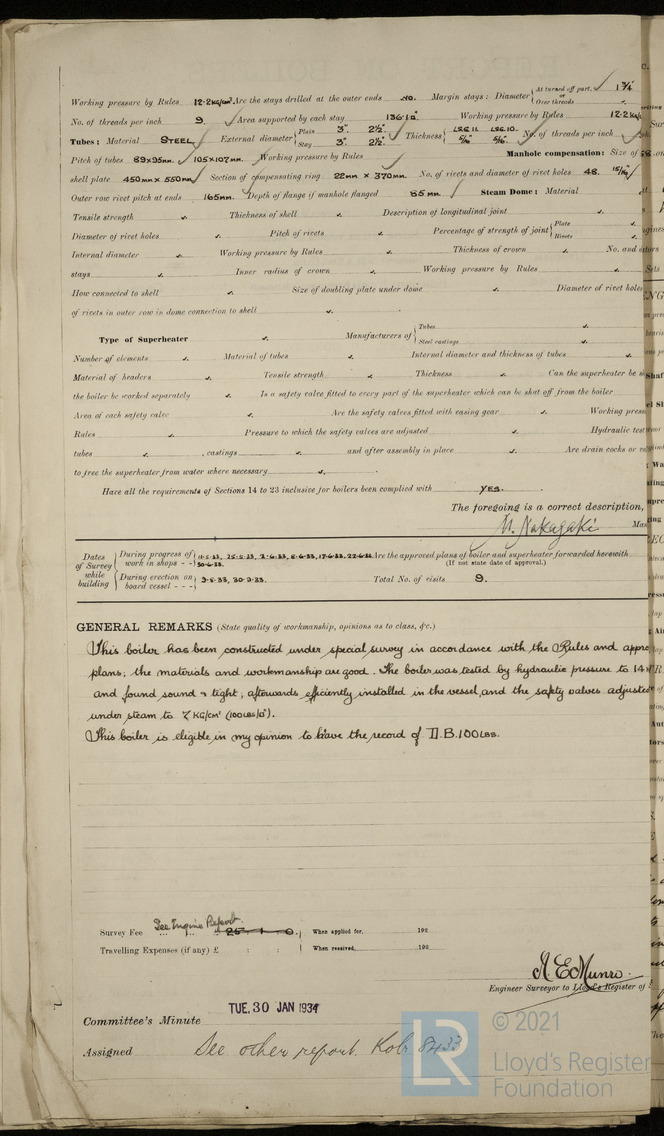 At turned off part. 1¾"
Working pressure by Rules 12·2 KG/CM². Are the stays drilled at the outer ends NO. Margin stays: Diameter { or
Over threads
No. of threads per inch 9. Area supported by each stay 136·1□" Working pressure by Rules 12·2 KG/C
Tubes: Material STEEL External diameter { Plain 3". 2½" Thickness { LSG 11. LSG 10. No. of threads per inch
Stay 3". 2½" 5/16" 5/16"
Pitch of tubes 89x95MM. 105x107MM. Working pressure by Rules Manhole compensation: Size of
shell plate 450MM x 550MM Section of compensating ring 22MM x 370MM. No. of rivets and diameter of rivet holes 48. 15/16"
Outer row rivet pitch at ends 165MM. Depth of flange if manhole flanged 85 MM. Steam Dome: Material
Tensile strength Thickness of shell Description of longitudinal joint
Diameter of rivet holes Pitch of rivets Percentage of strength of joint { Plate
Rivets
Internal diameter Working pressure by Rules Thickness of crown No. and
stays Inner radius of crown Working pressure by Rules
How connected to shell Size of doubling plate under dome Diameter of rivet holes
of rivets in outer row in dome connection to shell
Type of Superheater Manufacturers of { Tubes
Steel castings
Number of elements Material of tubes Internal diameter and thickness of tubes
Material of headers Tensile strength Thickness Can the superheater be
the boiler be worked separately Is a safety valve fitted to every part of the superheater which can be shut off from the boiler
Area of each safety valve Are the safety valves fitted with easing gear Working
Rules Pressure to which the safety valves are adjusted Hydraulic
tubes , castings and after assembly in place Are drain cocks or
to free the superheater from water where necessary
Have all the requirements of Sections 14 to 23 inclusive for boilers been complied with YES.
The foregoing is a correct description,
N. Nakagaki
Dates of Survey while building { During progress of work in shops - - { 11-5-33, 25-5-33, 2-6-33, 8-6-33, 17-6-33, 22-6-33 Are the approved plans of boiler and superheater forwarded herewith
30-6-33. (If not state date of approval.)
During erection on board vessel - - - { 9-8-33, 30-9-33. Total No. of visits 9.
GENERAL REMARKS (State quality of workmanship, opinions as to class, &c.)
This boiler has been constructed under special survey in accordance with the Rules and
plans; the materials and workmanship are good. The boiler was tested by hydraulic pressure to 14
and found sound & tight; afterwards efficiently installed in the vessel, and the safety valves adjusted
under steam to 7 KG/CM² (100 LBS/□").
This boiler is eligible in my opinion to have the record of D.B. 100 LBS.
See Engine Report.
Survey Fee £ 25 : 1 : 0. When applied for, 192
Travelling Expenses (if any) £ : : When received, 192
A. E. Munro.
Engineer Surveyor to Lloyd's Register of
Committee's Minute TUE. 30 JAN 1934
Assigned See other report. Kob. 8433
© 2021
LR
Lloyd's Register
Foundation